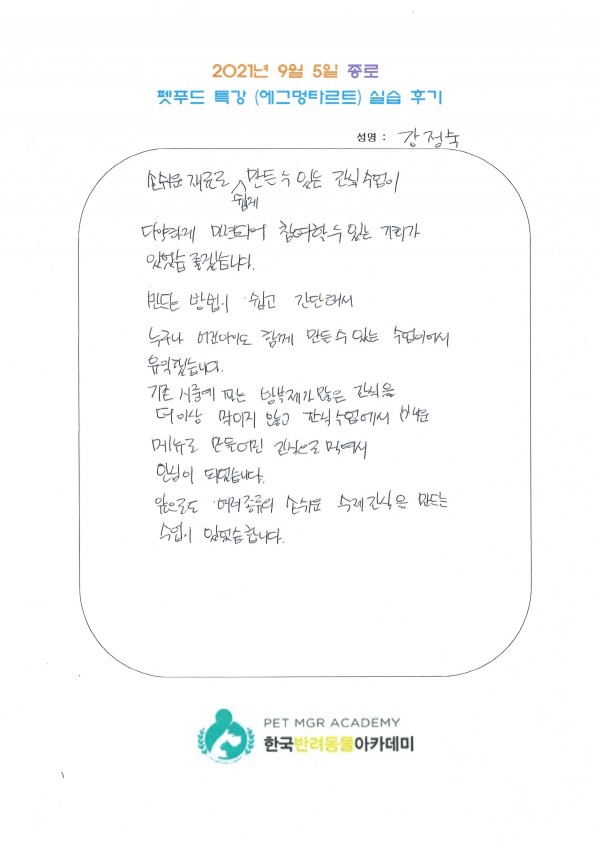 2021년 9월 5일 종로
펫푸드 특강 (에그멍타르트) 실습 후기
성명 : 강정숙
손쉬운 재료로 쉽게 만든 수 있는 간식수업이
다양하게 마련되어 참여할 수 있는 기회가
있었음 좋겠습니다.
만드는 방법이 쉽고 간단해서
누구나 어린아이도 함께 만든 수 있는 수업이어서
유익했습니다.
기존 시중에 파는 방부제가 많은 간식을
더이상 먹이지 않고 간식수업에서 배운
메뉴로 만들어진 간식으로 먹여서
안심이 되었습니다.
앞으로도 여러종류의 손쉬운 수제간식을 만드는
수업이 있었습 합니다.
PET MGR ACADEMY
한국반려동물아카데미